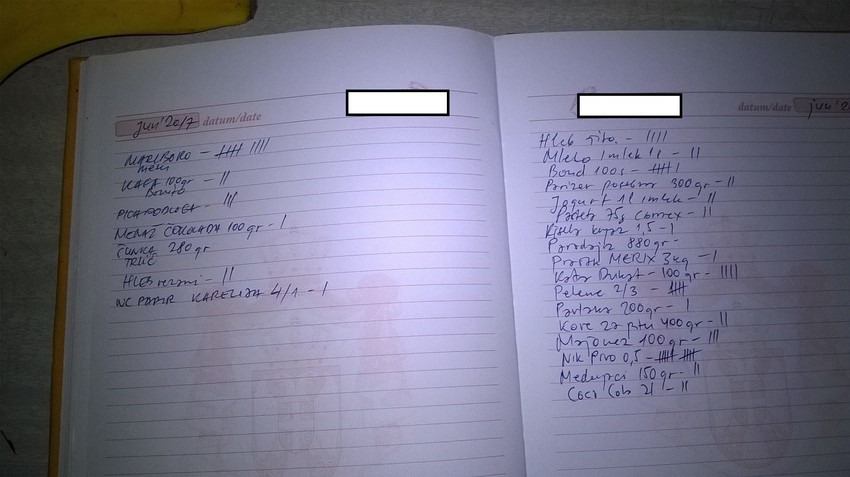 jun '2017 datum/date
MARLBORO - |||| ||||
meki
KAFA 100gr - ||
Bonito
- |||
MENAŽ ČOKOLADA 100 gr - |
ČUNKA 280 gr
TRLIĆ
HLEB rezani - ||
WC PAPIR KARELIJA 4/1 - |
datum/date jun '2
Hleb - ||||
Mleko Imlek 1l - ||
Bond 100s - |||| |
Parizer Poseban 300 gr - ||
Jogurt 1l imlek - ||
Pašteta 75g carnex - ||
Kisela 1,5 - |
Paradajz 880 gr -
Prašak MERIX 3 kg - |
Kafa Dukat - 100 gr - ||||
Pelene 2/3 - ||||
Pavlaka 200 gr - |
Kore za pitu 400 gr - ||
Majonez 100 gr - |||
Nik Pivo 0,5 - |||| ||||
150 gr - ||
Coca Cola 2l - ||